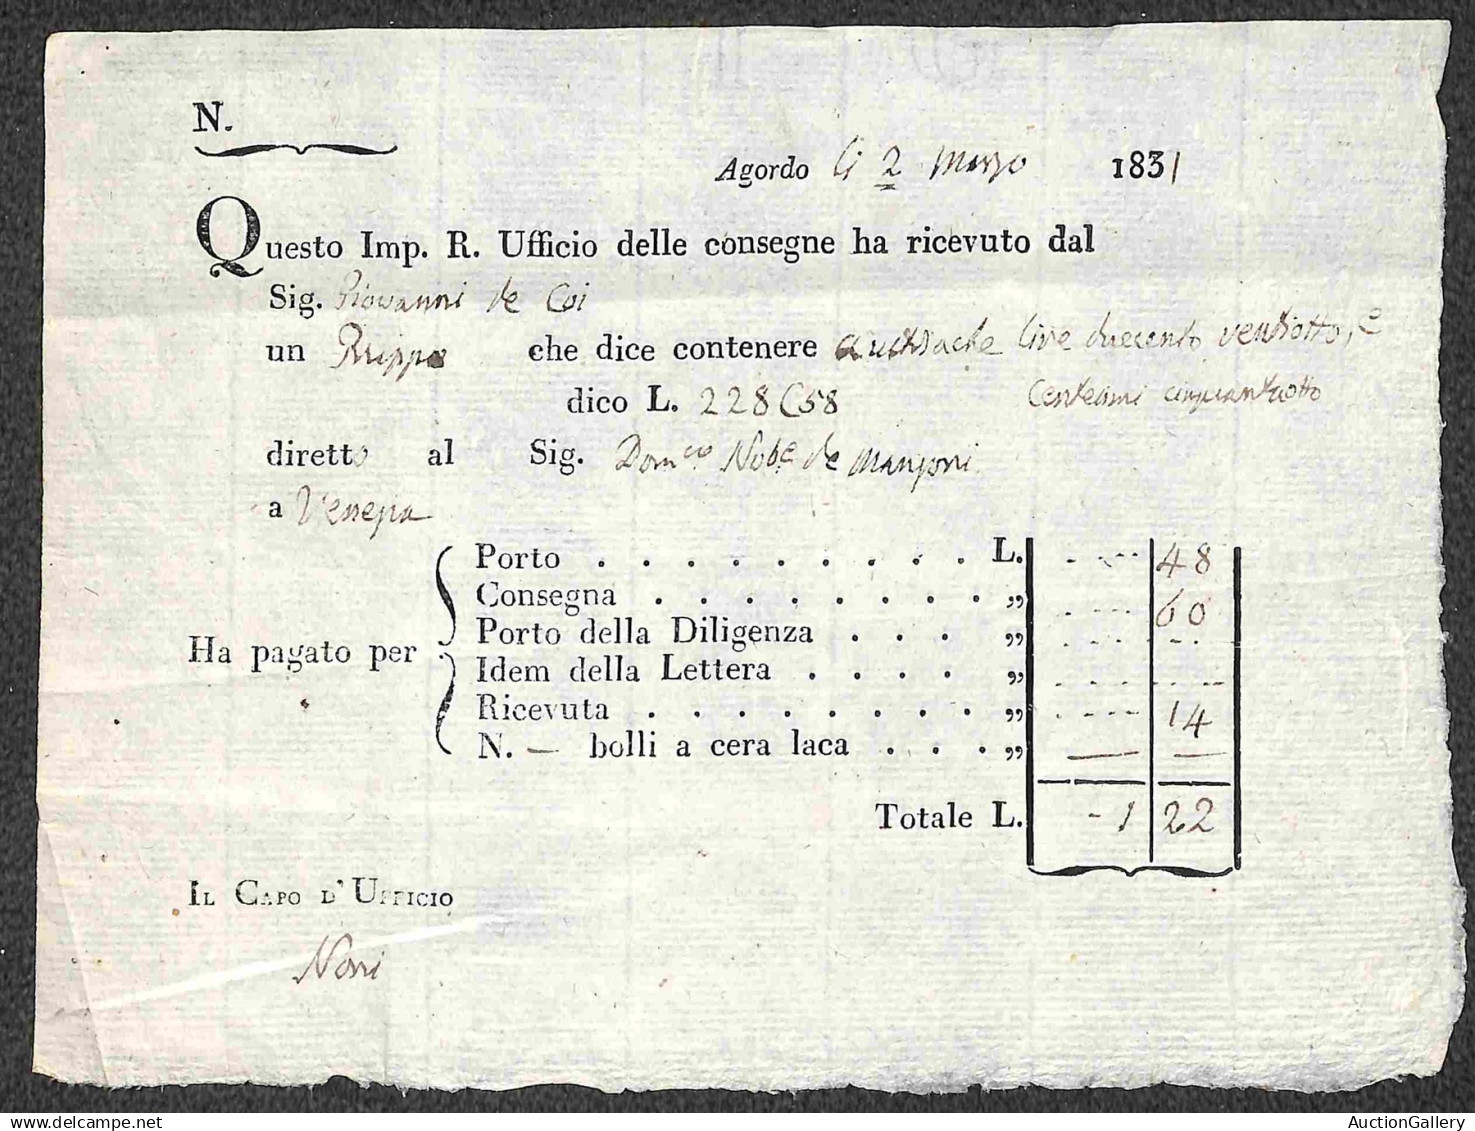 N.
Agordo li 2 Marzo 1831
Questo Imp. R. Ufficio delle consegne ha ricevuto dal
Sig. Giovanni de Coi
un che dice contenere austriache lire duecento ventiotto, e
dico L. 228 C 58 centesimi cinquantaotto
diretto al Sig. Dom.co Nob.e de Manzoni
a Venezia
Ha pagato per
Porto . . . . . . . . . . L. - --- 48
Consegna . . . . . . . . . „ - --- 60
Porto della Diligenza . . . „
Idem della Lettera . . . . „
Ricevuta . . . . . . . . „ - --- 14
N. — bolli a cera laca . . . „ — —
Totale L. - 1 22
Il Capo d'Ufficio
AuctionGallery